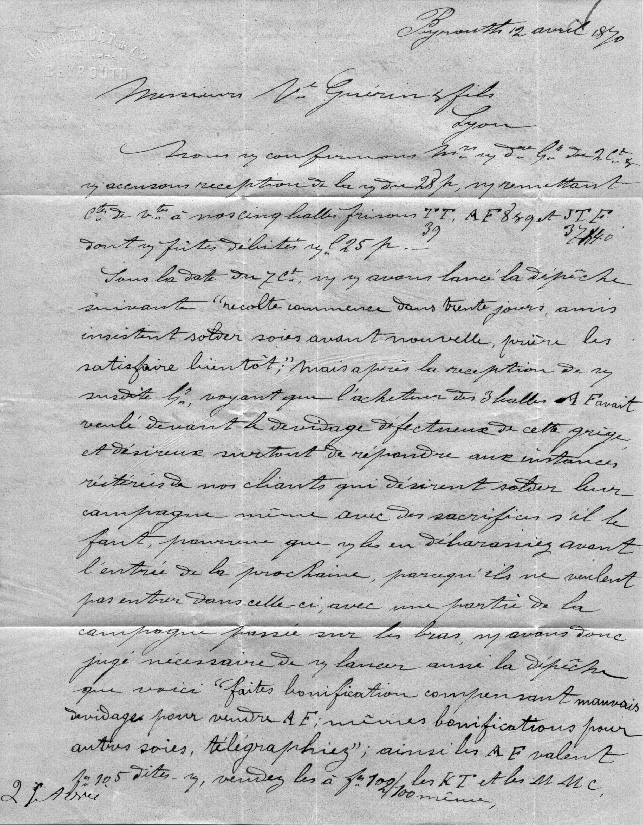 BEYROUTH
Beyrouth 12 avril 1870
Messieurs Vve Guérin & fils
Lyon
Nous v/ confirmons Mrs n/ dre Lre du 2 Ct &
v/ accusons reception de la v/ du 28 p, n/ remettant
Cte de vte à nos cinq balles frisons TT, AF 8 & 9 et JTF
39
dont v/ fûtes débités v/ 25 p.
Sous la date du 7 Ct, n/ v/ avons lancé la dépêche
suivante "recolte commence dans trente jours, amis
insistent solder soies avant nouvelle, prière les
satisfaire bientôt;" mais après la reception de v/
susdite Lre, voyant que l'acheteur des 3 balles AF avait
reculé devant le devidage défectueux de cette grège,
et désireux surtout de répondre aux instances
réitérées de nos chants qui désirent solder leur
campagne même avec des sacrifices s'il le
faut, pourvue que v/ les en débarassiez avant
l'entrée de la prochaine, parcequ'ils ne veulent
pas entrer dans celle-ci, avec une partie de la
campagne passée sur les bras, n/ avons donc
jugé nécessaire de v/ lancer aussi la dépêche
que voici "faites bonification compensant mauvais
devidages pour vendre AF; mêmes bonifications pour
autres soies, télégraphiez"; ainsi les AF valent
fr 105 dites-v/, vendez les à fr 102/100 les KT et les MMC,
même,